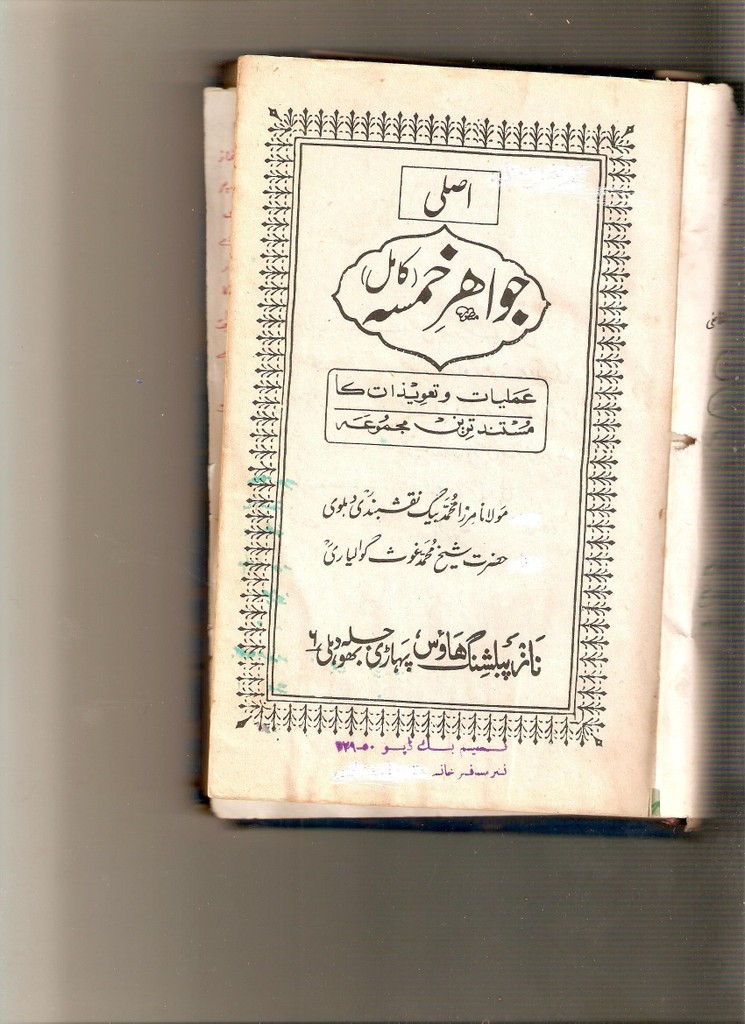 اصلی
جواهرِ خمسہ (کامل)
عملیات و تعویذات کا
مستند ترین مجموعہ
مولانا مرزا محمد بیگ نقشبندیؒ دہلوی
حضرت شیخ محمد غوث گوالیاریؒ
ناز پبلشنگ ھاؤس پہاڑی بھوجلہ دہلی ۶
بک ڈپو